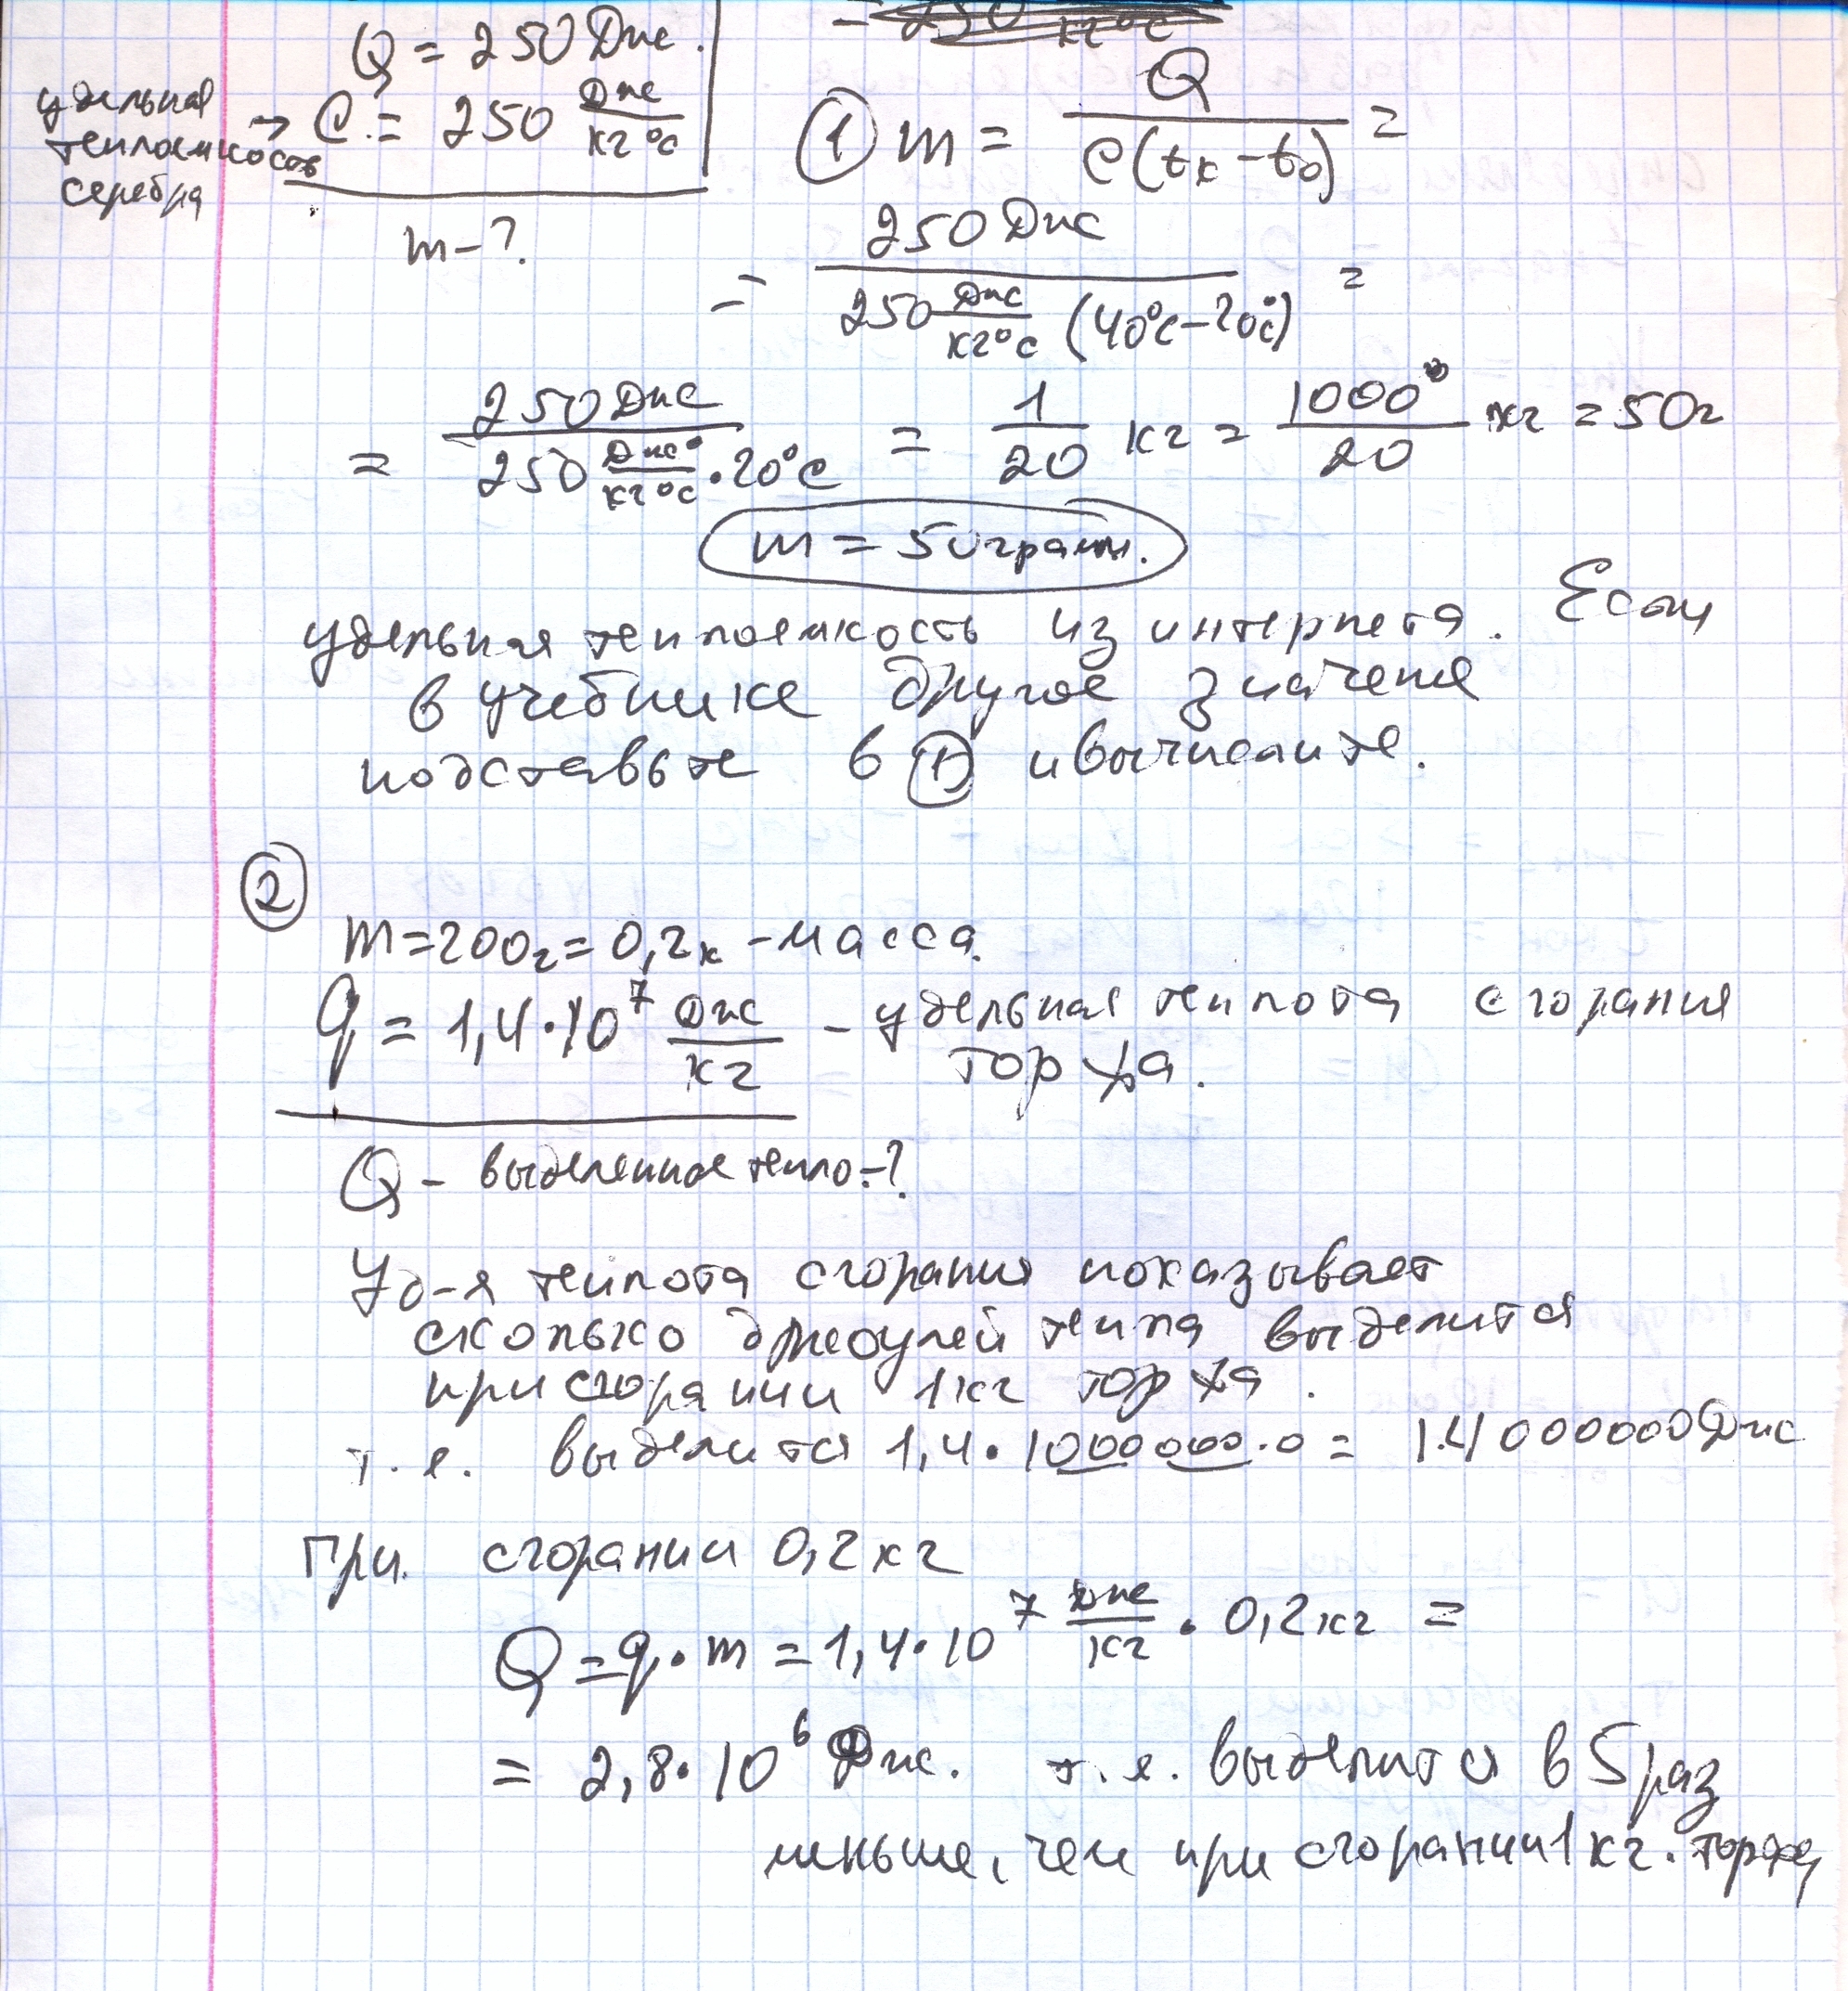 Q = 250 Дж.
удельная теплоемкость серебра → C = 250 Дж/кг°C
m - ?
① m = Q / C(tк - t0) =
= 250 Дж / 250 Дж/кг°C (40°C - 20°C) =
= 250 Дж / 250 Дж/кг°C · 20°C = 1/20 кг = 1000/20 кг = 50г
m = 50 грамм.
удельная теплоемкость из интернета. Если
в учебнике другое значение
подставьте в ① и вычислите.
②
m = 200г = 0,2к - масса.
q = 1,4·10⁷ Дж/кг - удельная теплота сгорания
торфа.
Q - выделенное тепло - ?
Уд-я теплота сгорания показывает
сколько джоулей тепла выделится
при сгорании 1кг торфа.
т.е. выделится 1,4·1000000·0 = 14000000 Дж
При сгорании 0,2кг
Q = q·m = 1,4·10⁷ Дж/кг · 0,2кг =
= 2,8·10⁶ Дж. т.е. выделится в 5 раз
меньше, чем при сгорании 1кг. торфа